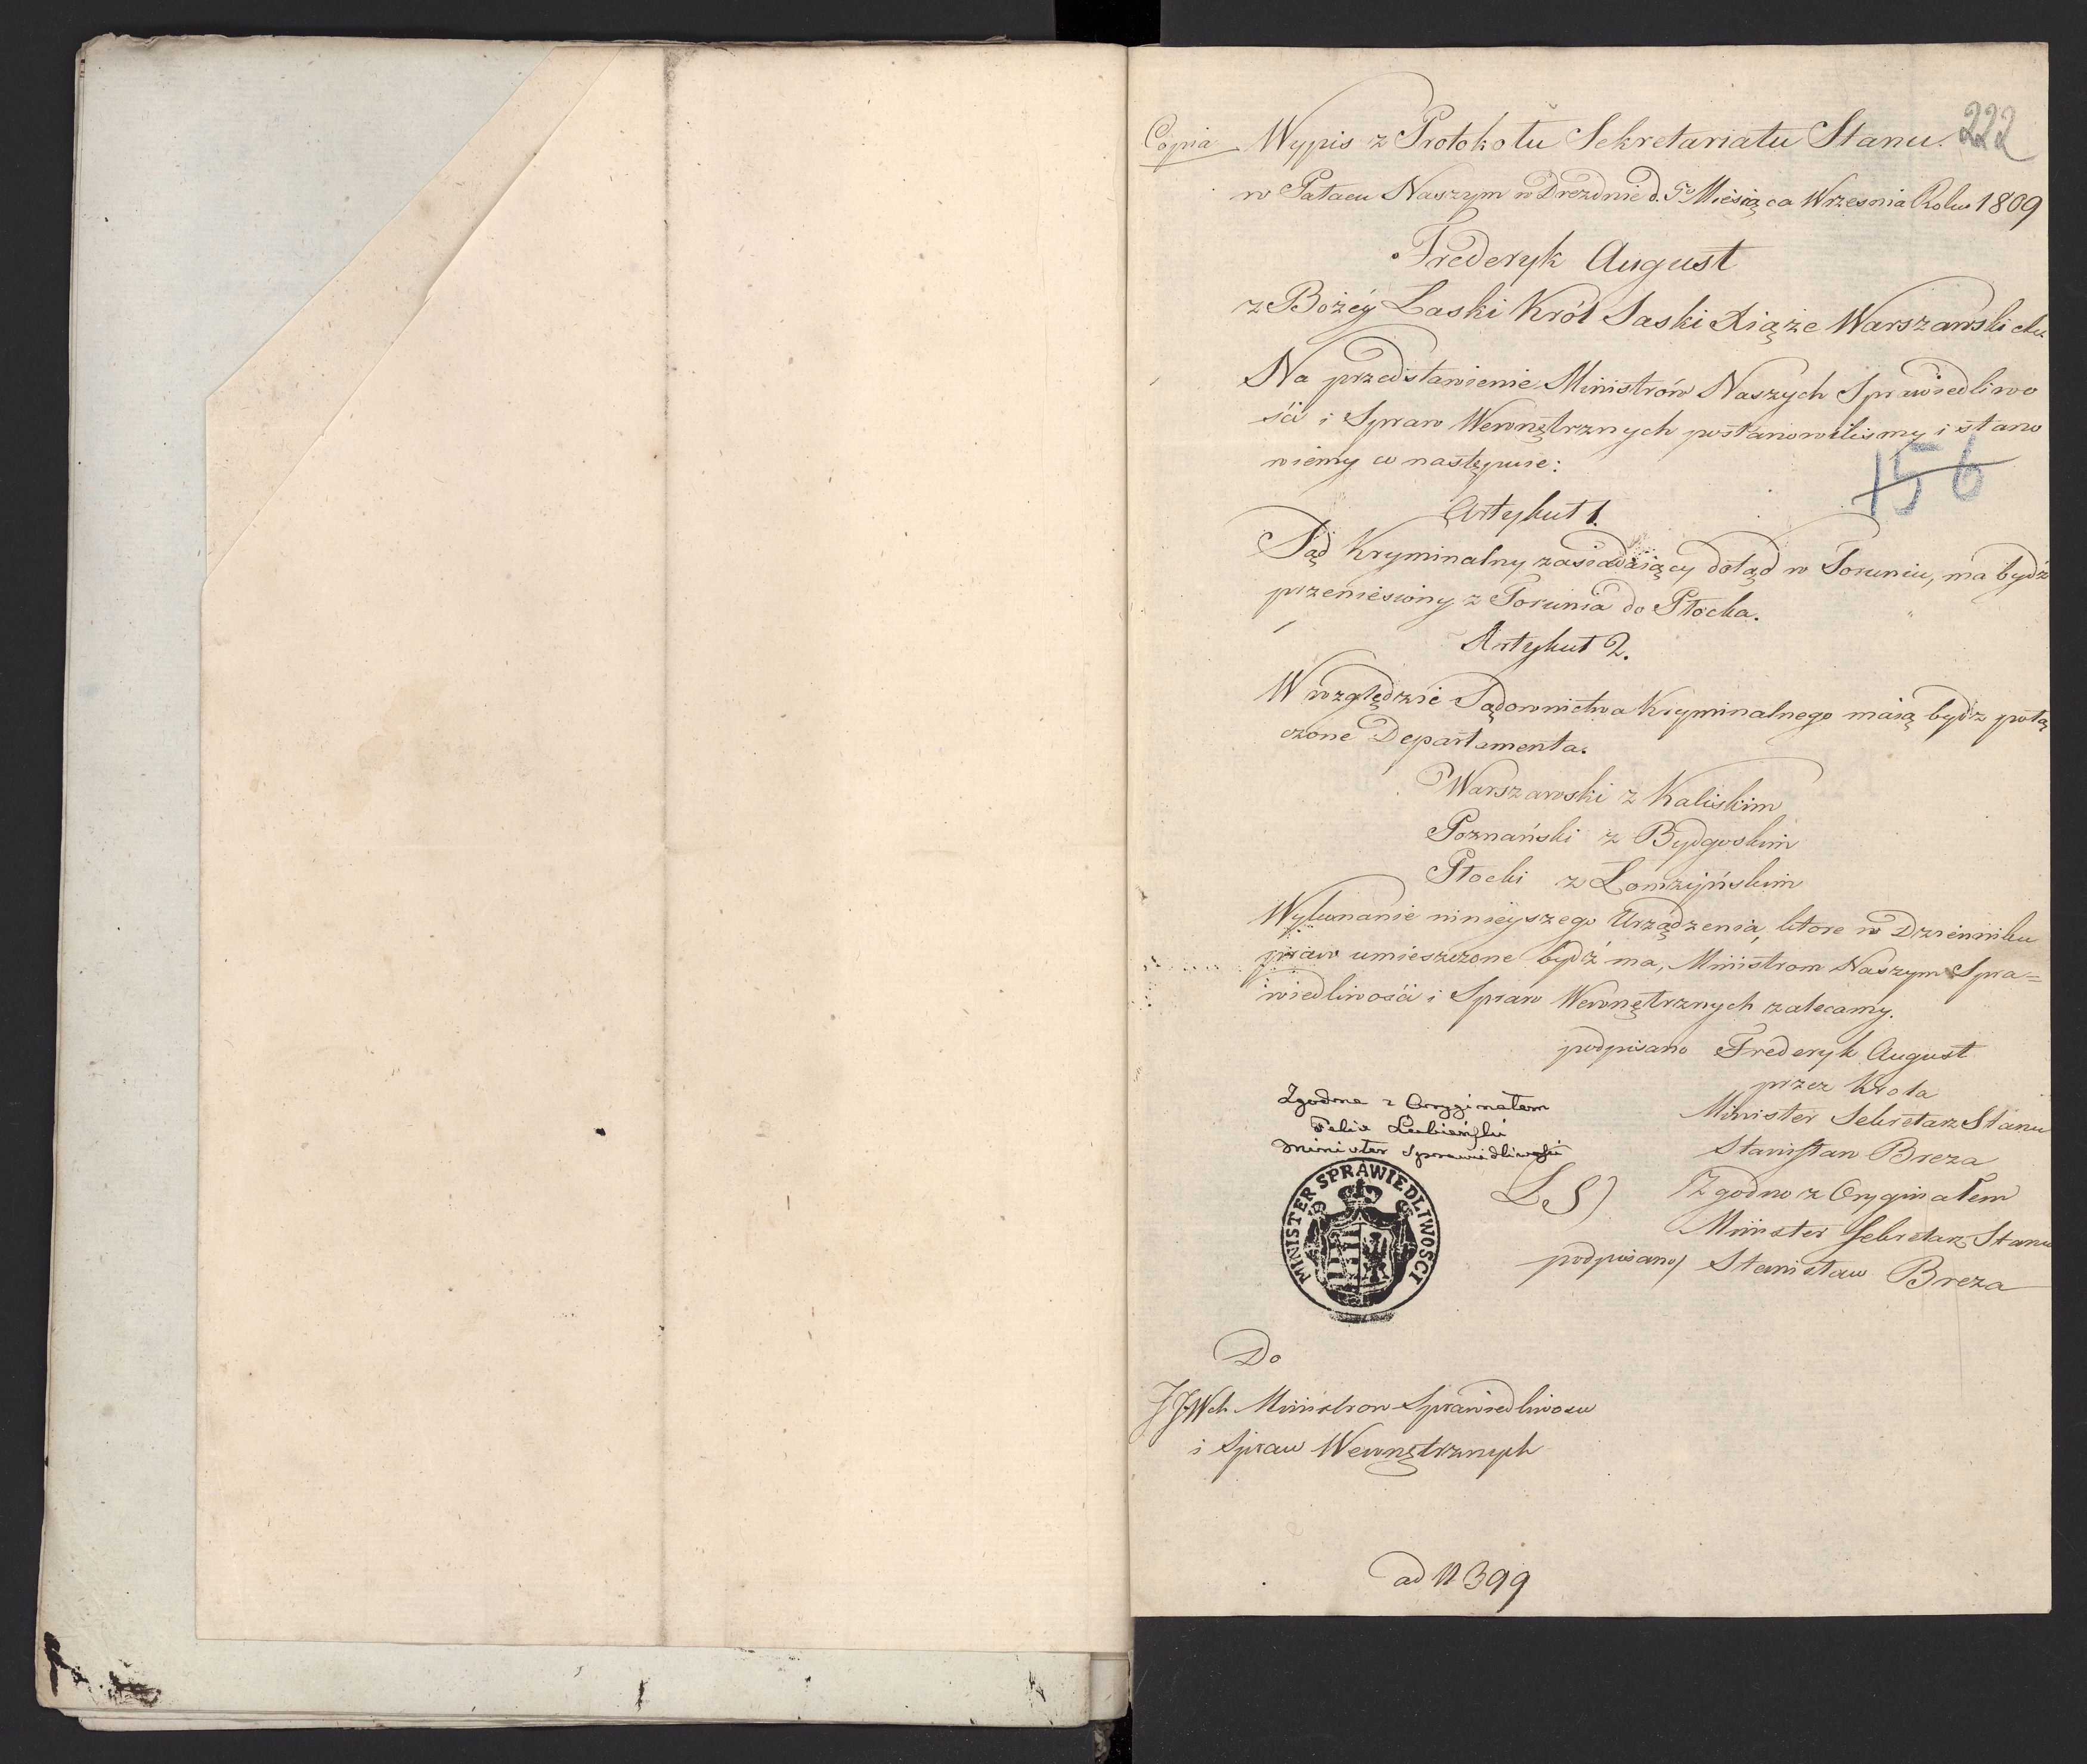 222
Copia Wypis z Protokołu Sekretariatu Stanu.
w Pałacu Naszym w Dreznie d. 9º Miesiąca Wrzesnia Roku 1809
Frederyk August
z Bożéy Łaski Król Saski Xiąże Warszawski &c.
Na przedstawienie Ministrów Naszych Sprawiedliwo
ści i Spraw Wewnętrznych postanowiliśmy i stano
wiemy co następuie:
156
Artykuł 1.
Sąd Kryminalny zasiadaiący dotąd w Toruniu, ma bydź
przeniesiony z Torunia do Płocka.
Artykuł 2.
W względzie Sądownictwa Kryminalnego maią bydź połą
czone Departamenta.
Warszawski z Kaliskim
Poznański z Bydgoskim
Płocki z Łomżyńskim
Wykonanie ninieyszego Urządzenia, ktore w Dzienniku
praw umieszczone bydź ma, Ministrom Naszym Spra=
wiedliwości i Spraw Wewnętrznych zalecamy.
podpisano Frederyk August
przez Krola
Minister Sekretarz Stanu
Stanisław Breza
Zgodno z Oryginałem
Felix Łubieński
Minister Sprawiedliwości
MINISTER SPRAWIEDLIWOSCI
L.S) Zgodno z Oryginałem
Minister Sekretarz Stanu
podpisano) Stanisław Breza
Do
JJWch Ministrow Sprawiedliwosci
i Spraw Wewnętrznych
ad N 399